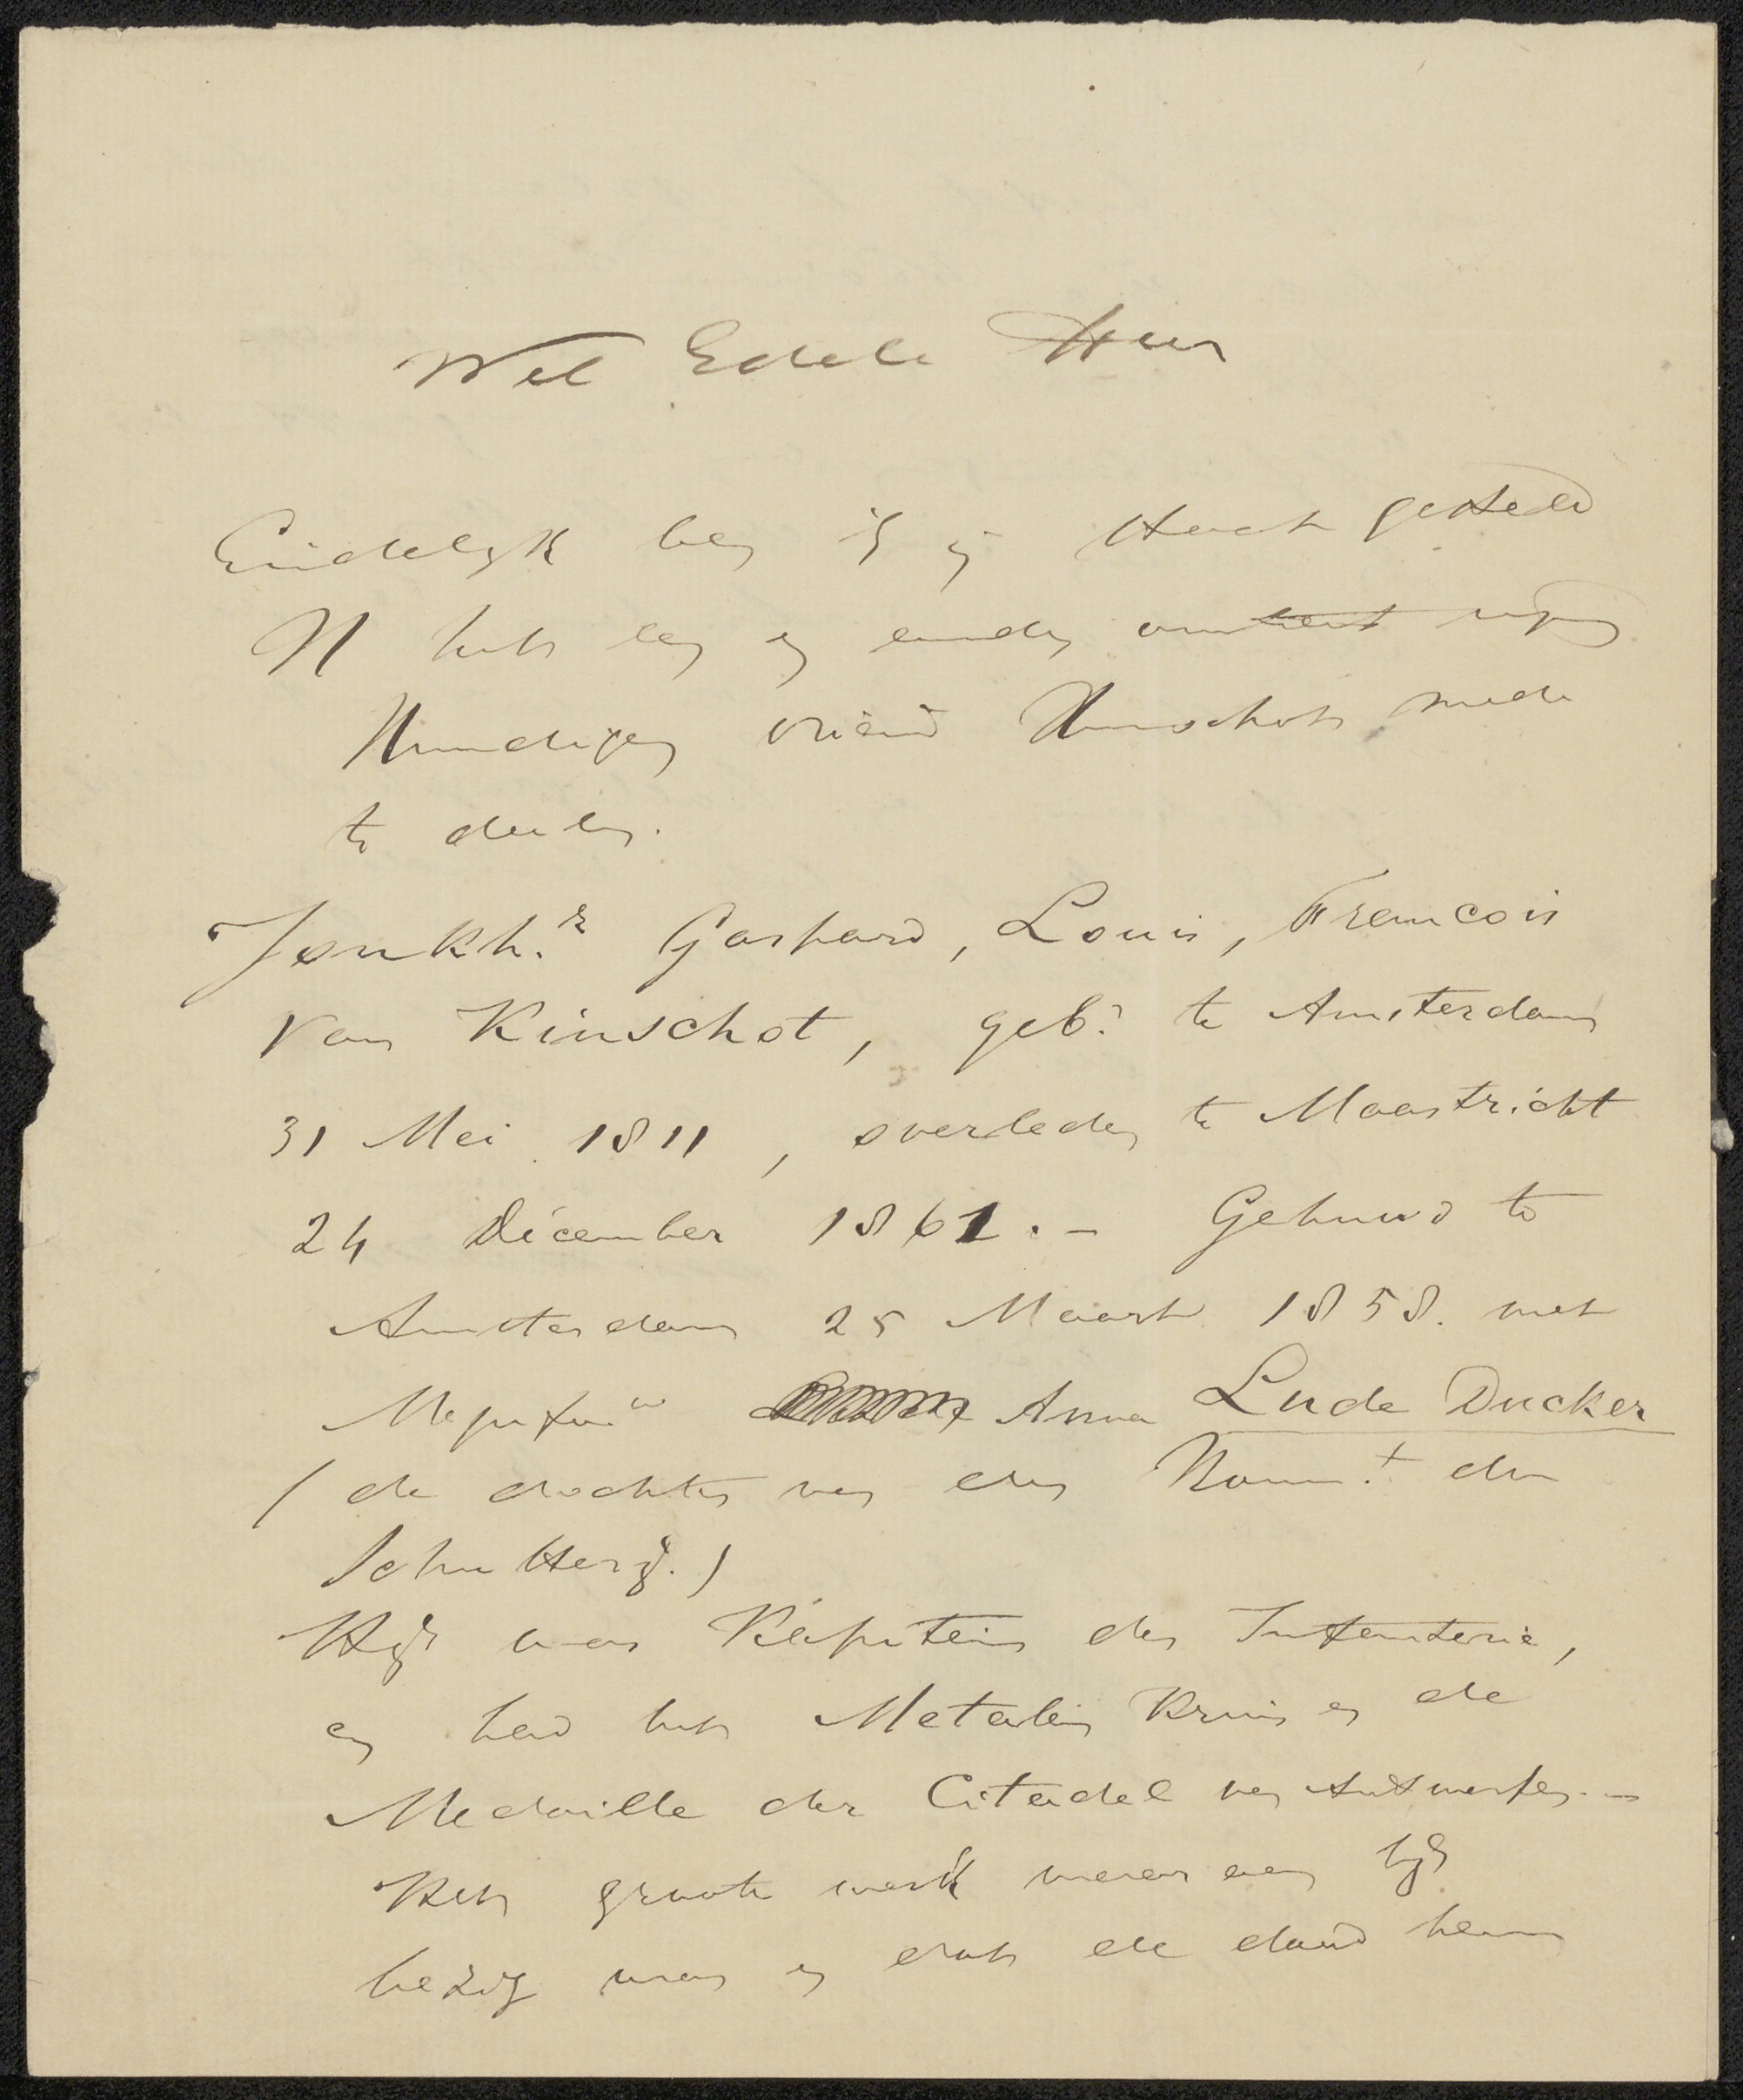 Wel Edele Heer
Eindelyk ben ik in staat gesteld
U het een en ander omtrent mijn
Kundigen vriend Kinschot mede
te deelen.
Jonkh.r Gaspard, Louis, Francois
van Kinschot, geb. te Amsterdam
31 Mei 1811, overleden te Maastricht
24 December 1861. - Gehuwd te
Amsterdam 25 Maart 1858. met
Mejufw Anna Lude Ducker
(de dochter van den Komt. der
Schutterij.)
Hij was Kapitein der Infanterie,
en had het Metalen Kruis en de
Medaille der Citadel van Antwerpen. -
Het groote werk waar aan hij
bezig was en dat de dood hem